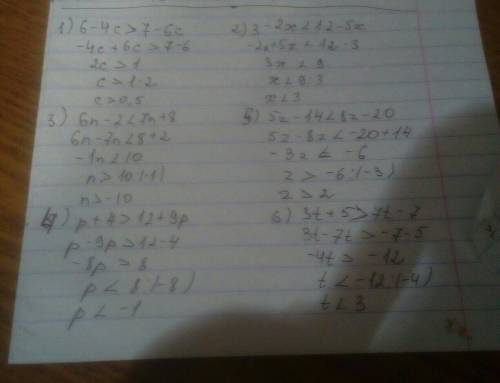 1) 6-4c>7-6c
-4c+6c>7-6
2c>1
c>1:2
c>0,5
2) 3-2x<12-5x
-2x+5x<12-3
3x<9
x<9:3
x<3
3) 6n-2<7n+8
6n-7n<8+2
-1n<10
n>10:(-1)
n>-10
5) 5z-14<8z-20
5z-8z<-20+14
-3z<-6
z>-6:(-3)
z>2
4) p+4>12+9p
p-9p>12-4
-8p>8
p<8:(-8)
p<-1
6) 3t+5>7t-7
3t-7t>-7-5
-4t>-12
t<-12:(-4)
t<3